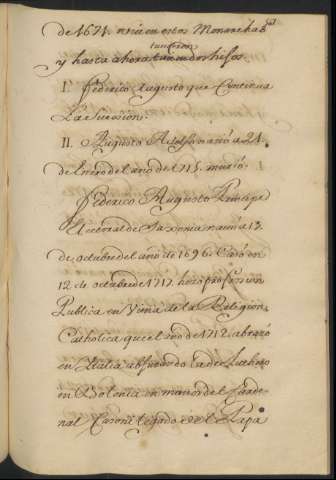 de 1671. nació en estos Monarchas
tuvieron
y hasta ahora tienen dos hijos
I. Federico Augusto que Continua
La Sucesion.
II. Augusto Adolfo nació a 24.
de enero del año de 1715. murió.
Federico Augusto Principe
Electoral de Saxonia nació a 13.
de octubre del año de 1696. Casó en
12 de octubre de 1717. hizo profession
Publica en Viena de la Religion
Catholica que el año de 1712. abrazó
en Italia abjurando la de Luthero
en Bolonia en manos del Carde-
nal Casoni legado del Papa